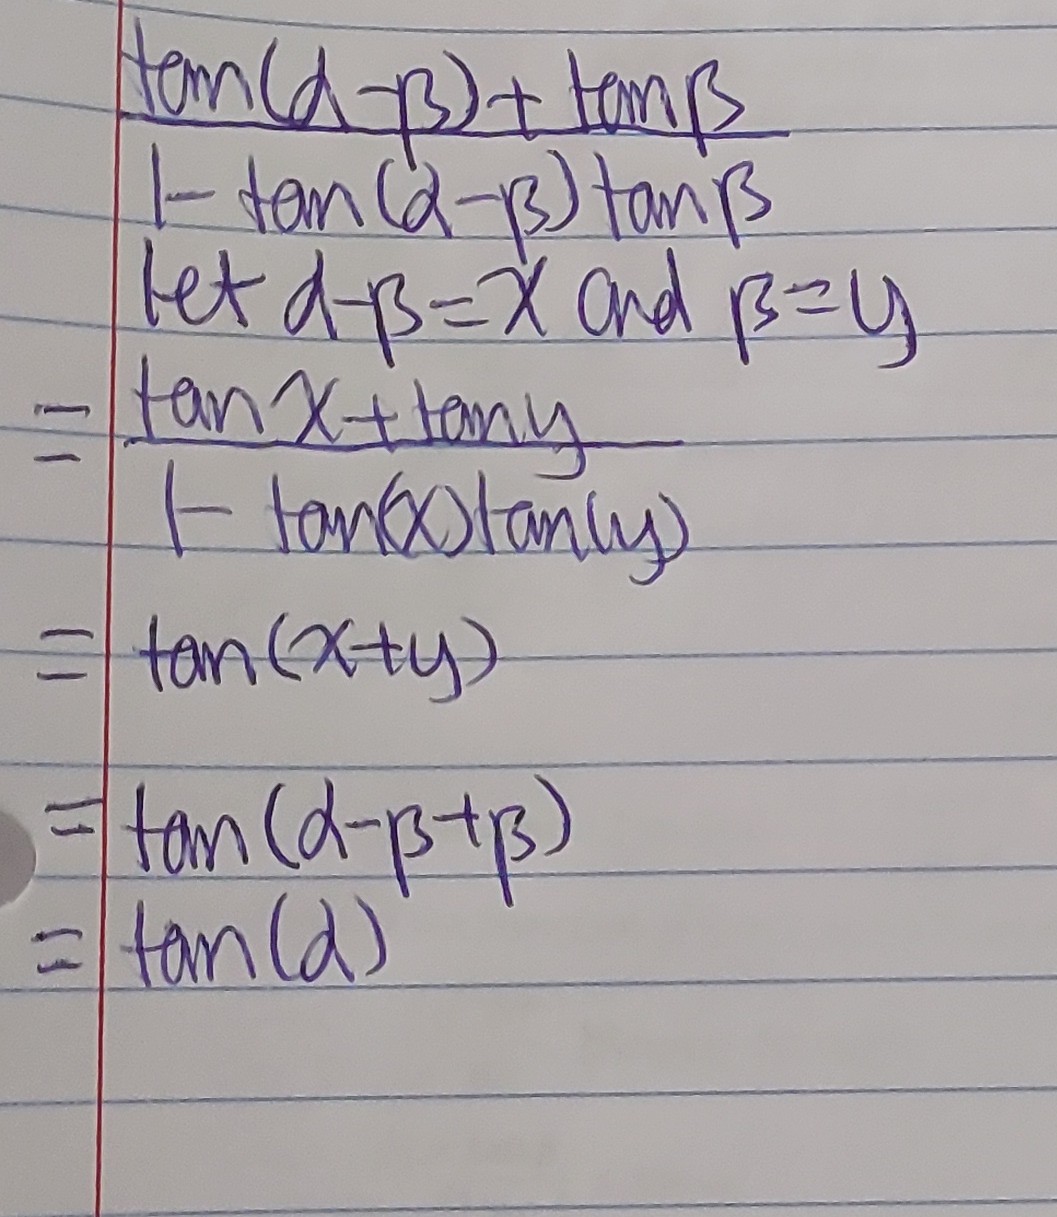 tan(α-β)+tanβ
1-tan(α-β)tanβ
let α-β=x and β=y
= tanx+tany
1-tan(x)tan(y)
= tan(x+y)
= tan(α-β+β)
= tan(α)